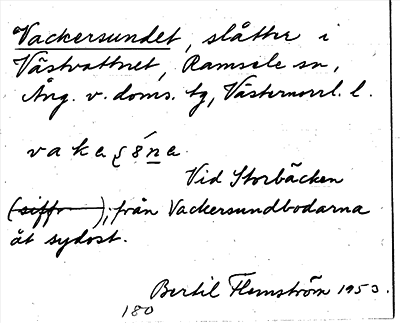 Vackersundet, slåtter i
Västvattnet, Ramsele sn,
Ång. v. doms. tg, Västernorrl. l.
Vid Storbäcken
(siffr ); från Vackersundbodarna
åt sydost.
Bertil Flemström 1953.
180